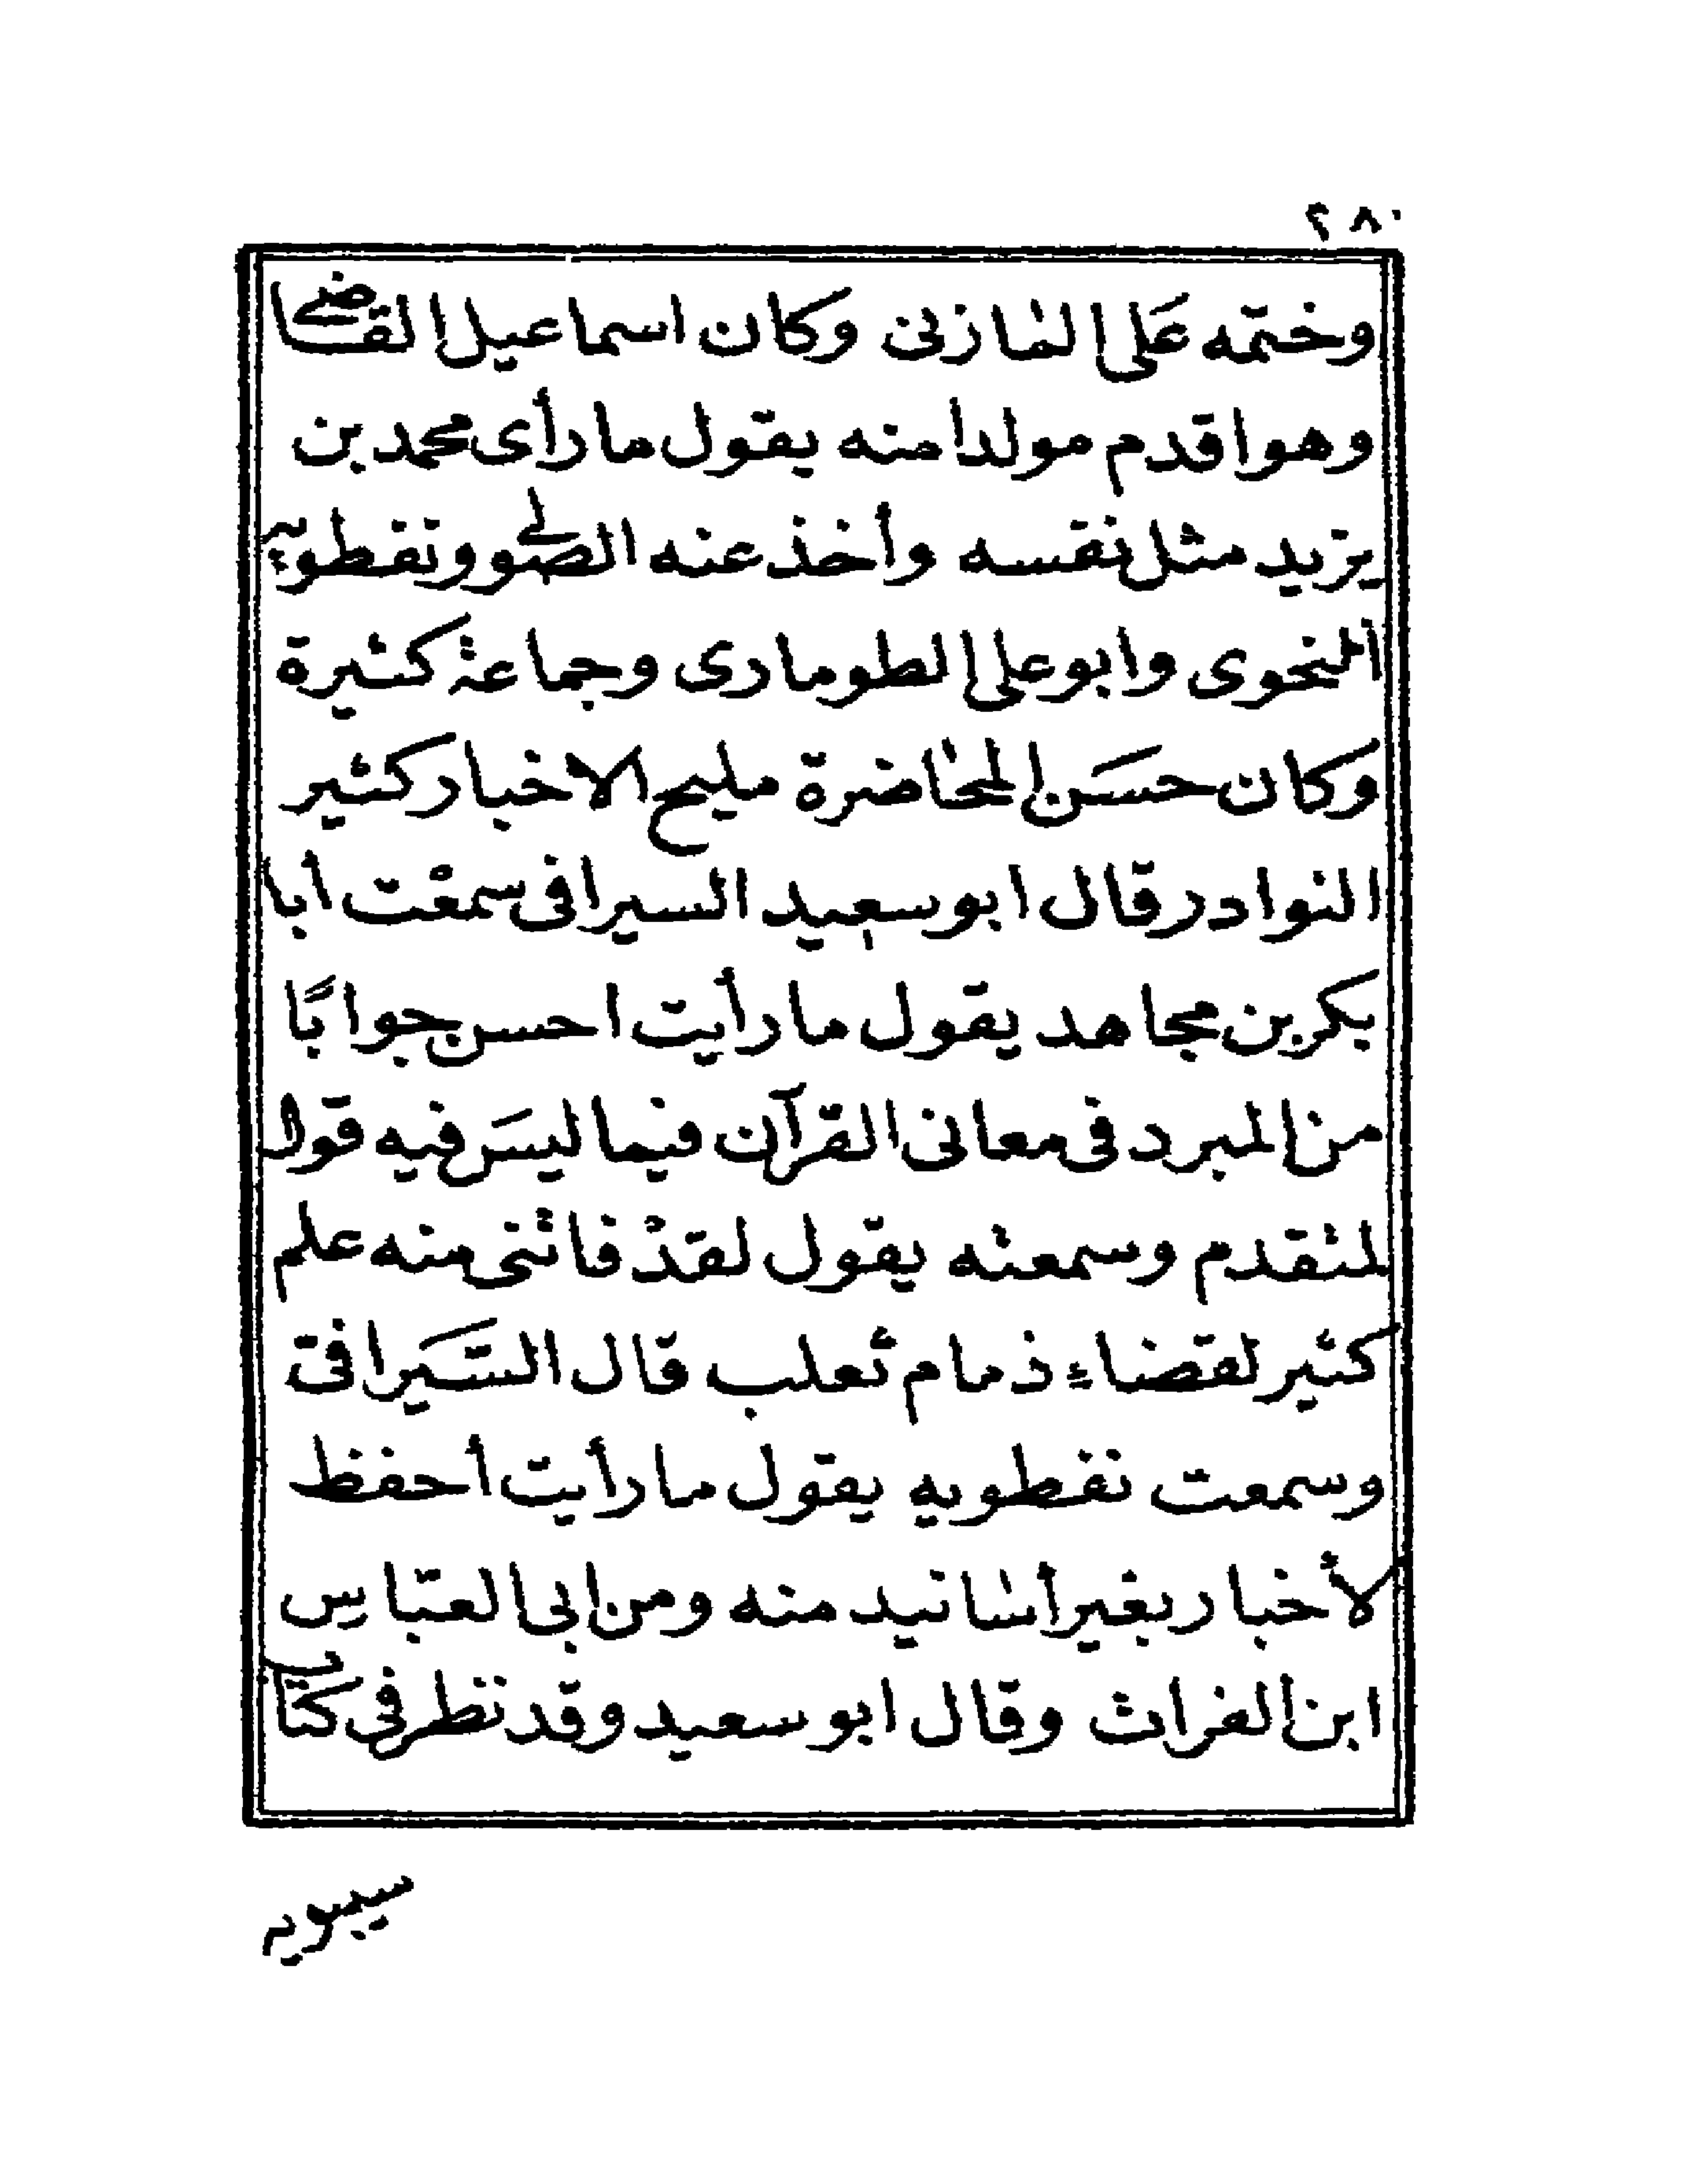 ٢٨٠
وختمه عَلى المازنى وكان اسماعيل القاضى
وهو اقدم مولدا منه يقول ما رأى محمد بن
يزيد مثل نفسه وأخذ عنه الصولى ونفطويه
النحوى وابو على الطومارى وجماعة كثيرة
وكان حسَن المحاضرة مليح الاخبار كثير
النوادر قال ابو سعيد السيرافى سمعْت أبا
بكر بن مجاهد يقول ما رأيت احسن جوابًا
من المبرد فى معانى القرآن فيما ليسَ فيه قول
لمتقدم وسمعته يقول لقدْ فاتنى منه علم
كثير لقضاء ذمام ثعلب قال السَّيرافى
وسمعت نفطويه يقول ما رأيت أحفظ
لأخبار بغير أسانيد منه ومن ابى العبّاس
ابن الفرات وقال ابو سعيد وقد نظر فى كتاب
سيبويه